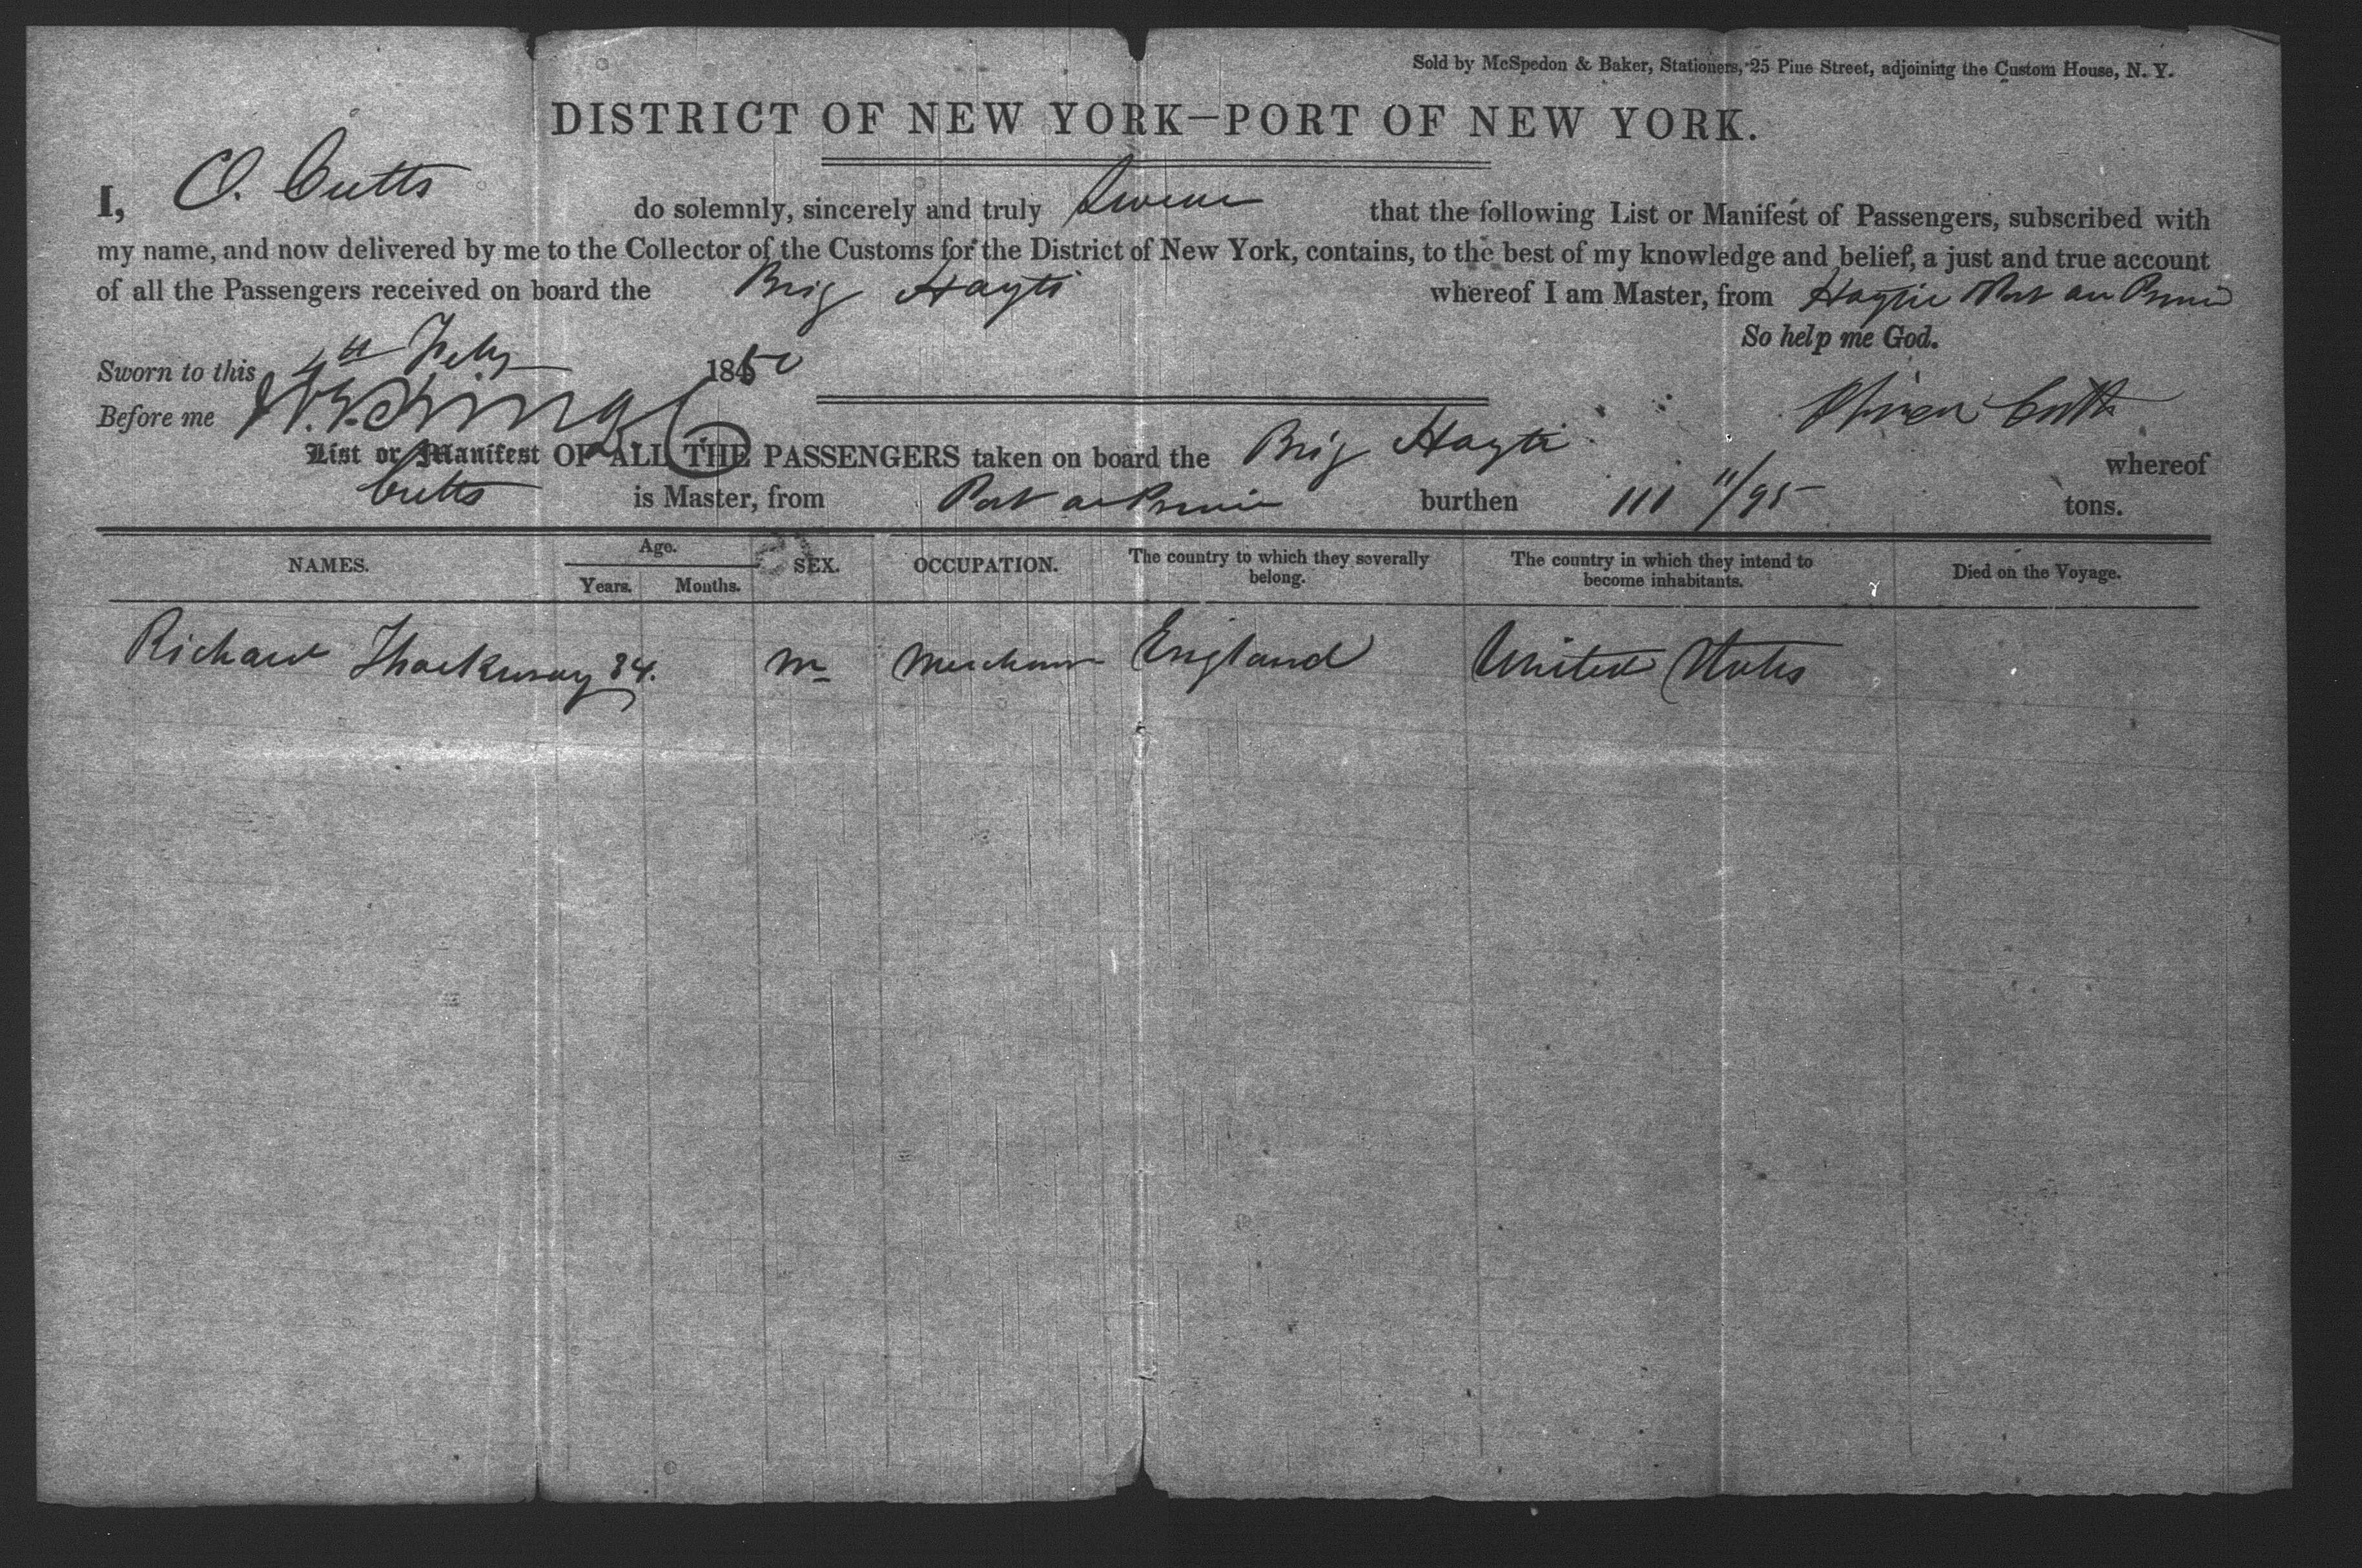 Sold by McSpedon & Baker, Stationers, 25 Pine Street, adjoining the Custom House, N. Y.
DISTRICT OF NEW YORK—PORT OF NEW YORK.
I, O. Cutts do solemnly, sincerely and truly Swear that the following List or Manifest of Passengers, subscribed with
my name, and now delivered by me to the Collector of the Customs for the District of New York, contains, to the best of my knowledge and belief, a just and true account
of all the Passengers received on board the Brig Hayti whereof I am Master, from Haytie Port au Prince
So help me God.
Sworn to this 4th Feby 1850
Before me Oliver Cutts
List or Manifest OF ALL THE PASSENGERS taken on board the Brig Hayti whereof
Cutts is Master, from Port au Prince burthen 111 11/95 tons.
NAMES. Age. Years. Months. SEX. OCCUPATION. The country to which they severally belong. The country in which they intend to become inhabitants. Died on the Voyage.
Richard Thackuray 34. M Merchant England United States